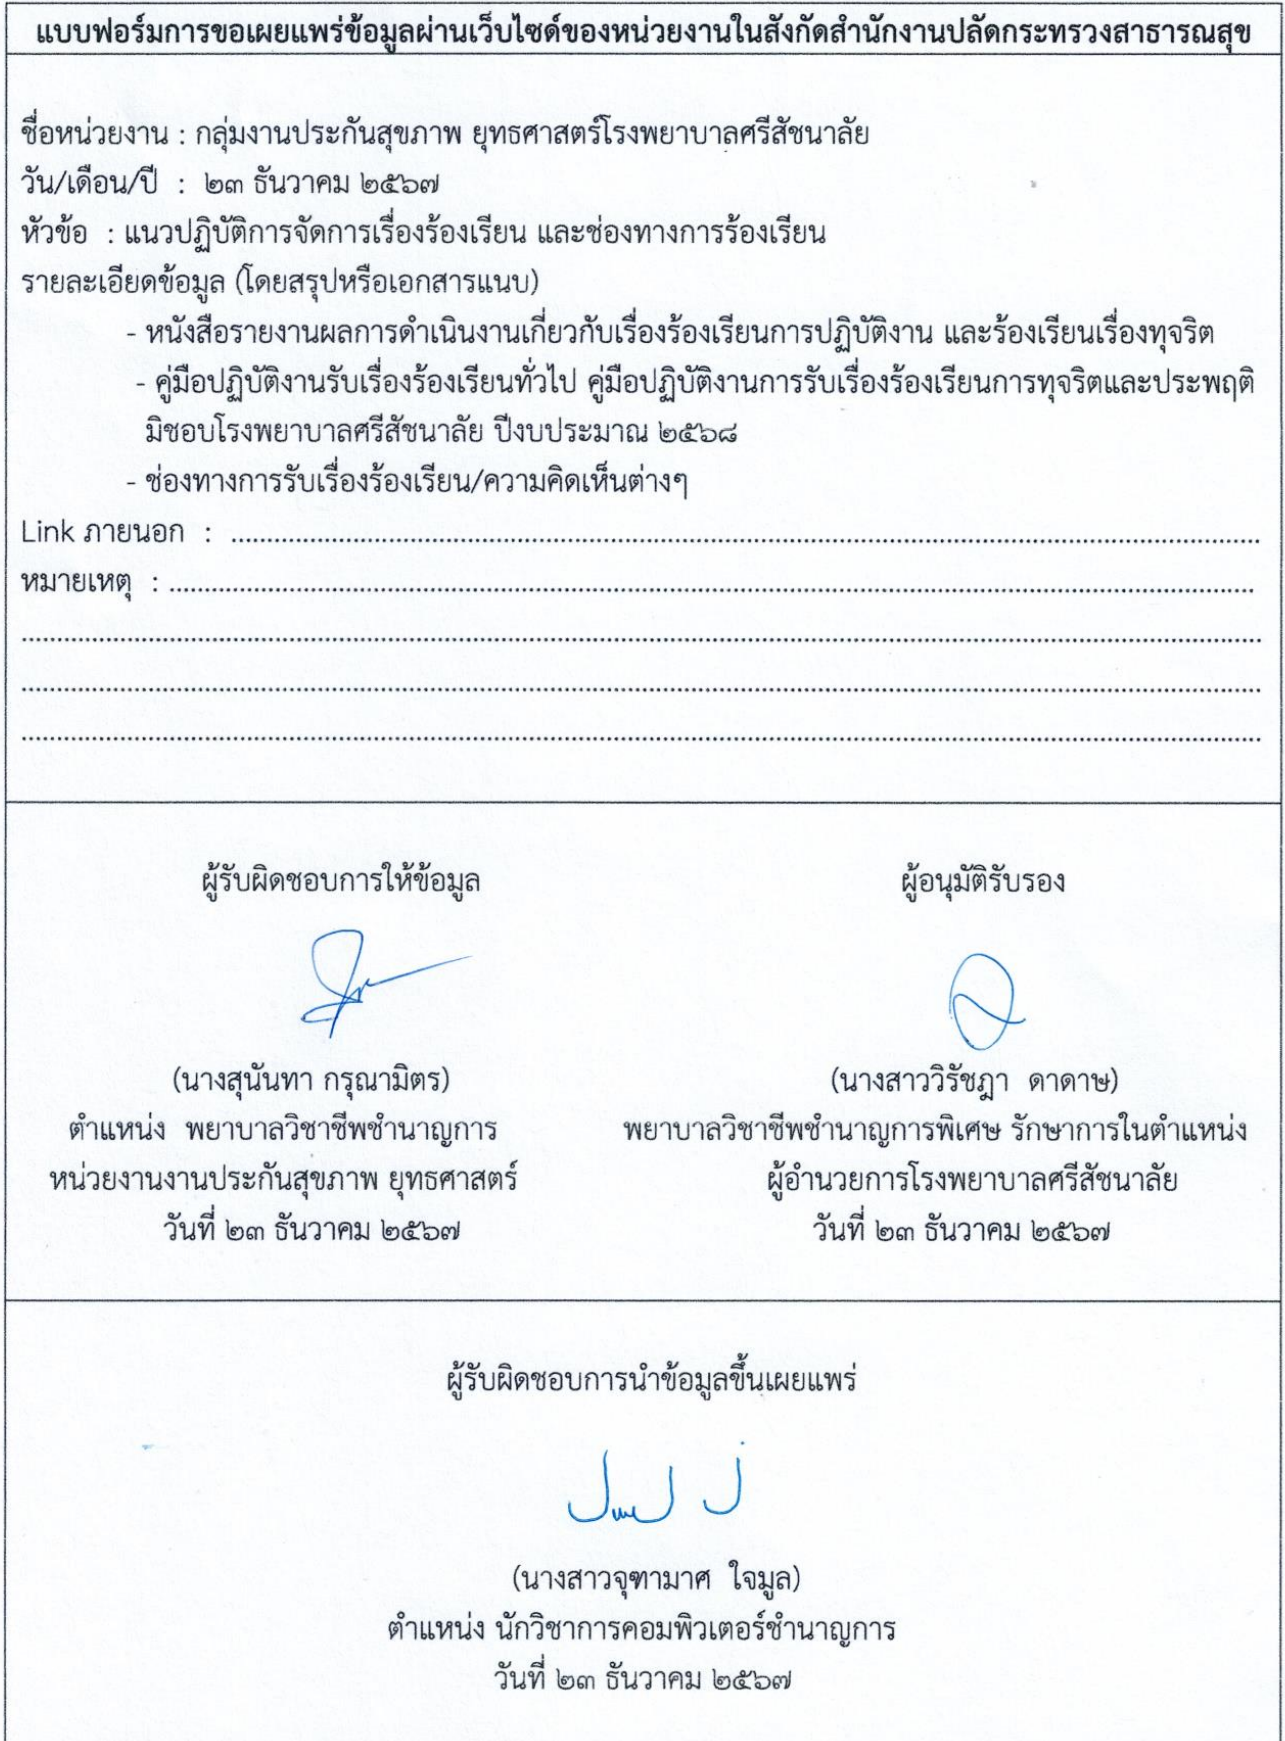 แบบฟอร์มการขอเผยแพร่ข้อมูลผ่านเว็บไซต์ของหน่วยงานในสังกัดสำนักงานปลัดกระทรวงสาธารณสุข
ชื่อหน่วยงาน : กลุ่มงานประกันสุขภาพ ยุทธศาสตร์โรงพยาบาลศรีสัชนาลัย
วัน/เดือน/ปี : ๒๓ ธันวาคม ๒๕๖๗
หัวข้อ : แนวปฏิบัติการจัดการเรื่องร้องเรียน และช่องทางการร้องเรียน
รายละเอียดข้อมูล (โดยสรุปหรือเอกสารแนบ)
- หนังสือรายงานผลการดำเนินงานเกี่ยวกับเรื่องร้องเรียนการปฏิบัติงาน และร้องเรียนเรื่องทุจริต
- คู่มือปฏิบัติงานรับเรื่องร้องเรียนทั่วไป คู่มือปฏิบัติงานการรับเรื่องร้องเรียนการทุจริตและประพฤติ
มิชอบโรงพยาบาลศรีสัชนาลัย ปีงบประมาณ ๒๕๖๘
- ช่องทางการรับเรื่องร้องเรียน/ความคิดเห็นต่างๆ
Link ภายนอก : ........................................................................
หมายเหตุ : ........................................................................
........................................................................
........................................................................
........................................................................
ผู้รับผิดชอบการให้ข้อมูล
(นางสุนันทา กรุณามิตร)
ตำแหน่ง พยาบาลวิชาชีพชำนาญการ
หน่วยงานงานประกันสุขภาพ ยุทธศาสตร์
วันที่ ๒๓ ธันวาคม ๒๕๖๗
ผู้อนุมัติรับรอง
(นางสาววิรัชฎา ดาดาษ)
พยาบาลวิชาชีพชำนาญการพิเศษ รักษาการในตำแหน่ง
ผู้อำนวยการโรงพยาบาลศรีสัชนาลัย
วันที่ ๒๓ ธันวาคม ๒๕๖๗
ผู้รับผิดชอบการนำข้อมูลขึ้นเผยแพร่
(นางสาวจุฑามาศ ใจมูล)
ตำแหน่ง นักวิชาการคอมพิวเตอร์ชำนาญการ
วันที่ ๒๓ ธันวาคม ๒๕๖๗